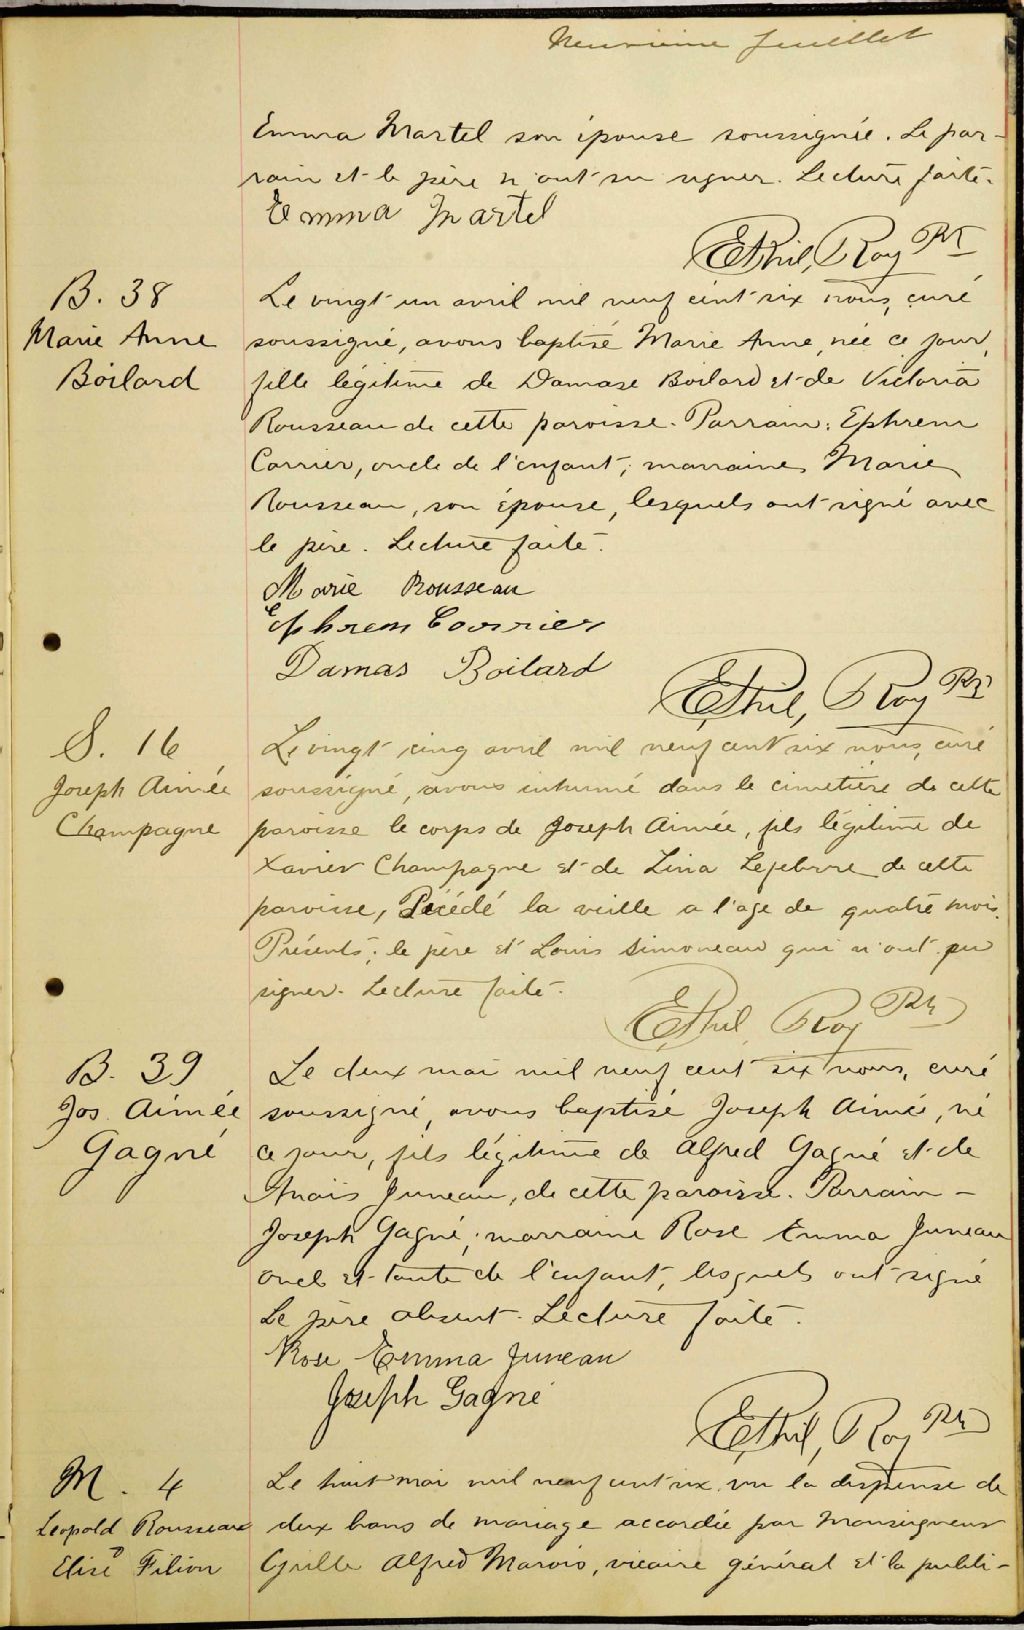 Neuvième feuillet
Emma Martel son épouse soussignée. Le par-
rain et le père n'ont su signer. Lecture faite.
Emma Martel
E Phil, Roy Ptr
B. 38
Marie Anne
Boilard
Le vingt un avril mil neuf cent six nous, curé
soussigné, avons baptisé Marie Anne, née ce jour,
fille légitime de Damase Boilard et de Victoria
Rousseau de cette paroisse. Parrain: Ephrem
Carrier, oncle de l'enfant; marraine Marie
Rousseau, son épouse, lesquels ont signé avec
le père. Lecture faite.
Marie Rousseau
Ephrem Carrier
Damas Boilard
E Phil, Roy Ptr
S. 16
Joseph Aimée
Champagne
Le vingt cinq avril mil neuf cent six nous, curé
soussigné, avons inhumé dans le cimetière de cette
paroisse le corps de Joseph Aimée, fils légitime de
Xavier Champagne et de Lina Lefebvre de cette
paroisse, Décédé la veille a l'age de quatre mois.
Présents; le père et Louis Simoneau qui n'ont pu
signer. Lecture faite.
E Phil Roy Ptr
B. 39
Jos Aimée
Gagné
Le deux mai mil neuf cent six nous, curé
soussigné, avons baptisé Joseph Aimée, né
ce jour, fils légitime de Alfred Gagné et de
Anaïs Juneau, de cette paroisse. Parrain -
Joseph Gagné; marraine Rose Emma Juneau
oncle et tante de l'enfant, lesquels ont signé
Le père absent. Lecture faite.
Rose Emma Juneau
Joseph Gagné
E Phil, Roy Ptr
M. 4
Leopold Rousseau
Elise Filion
Le huit mai mil neuf cent six, vu la dispense de
deux bans de mariage accordée par Monseigneur
Cyrille Alfred Marois, vicaire général et la publi-